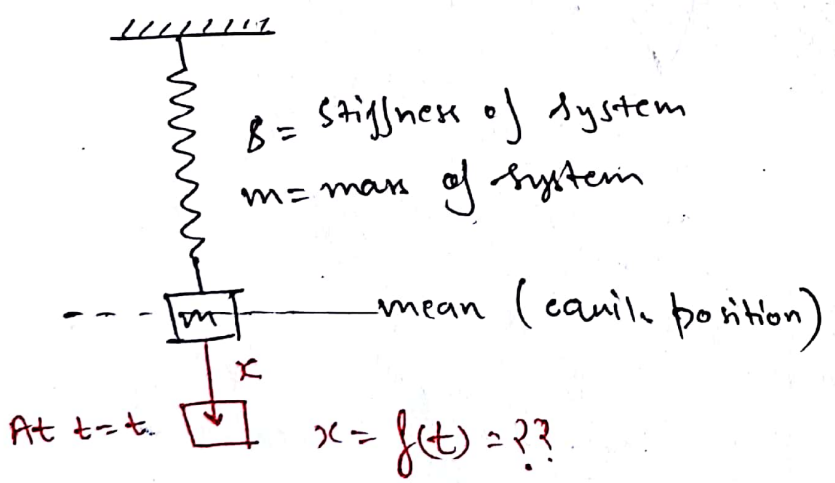 S = Stiffness of system
m = mass of system
m
mean (equil. position)
x
At t=t. x = f(t) = ??